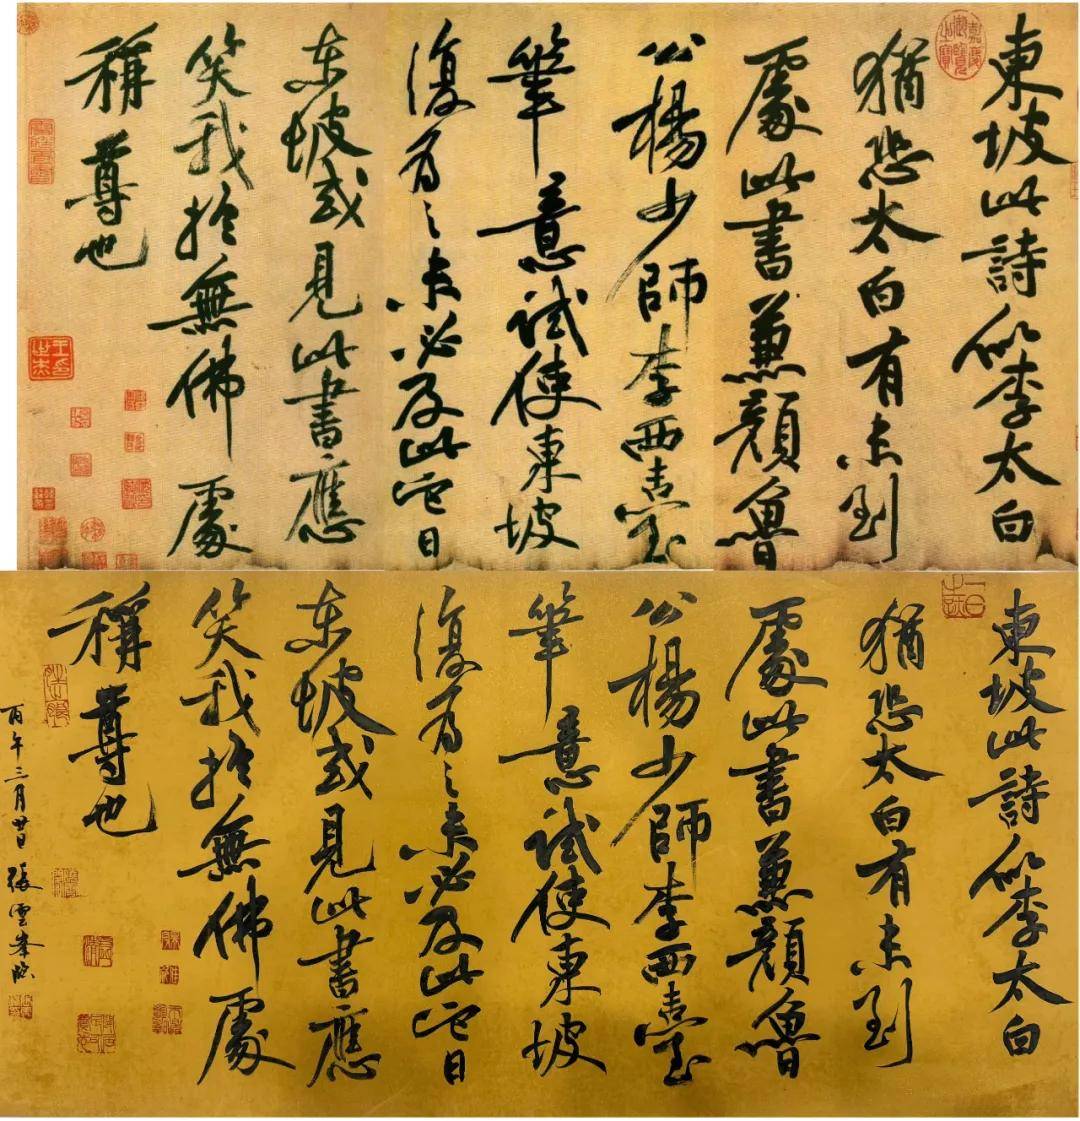 嘉慶御覽之寶
東坡此詩似李太白
猶恐太白有未到
處此書兼顏魯
公楊少師李西臺
筆意試使東坡
復為之未必及此它日
東坡或見此書應
笑我於無佛處
稱尊也
王印世杰
東坡此詩似李太白
猶恐太白有未到
處此書兼顏魯
公楊少師李西臺
筆意試使東坡
復為之未必及此它日
東坡或見此書應
笑我於無佛處
稱尊也
丙午三月廿日 張雲峯臨